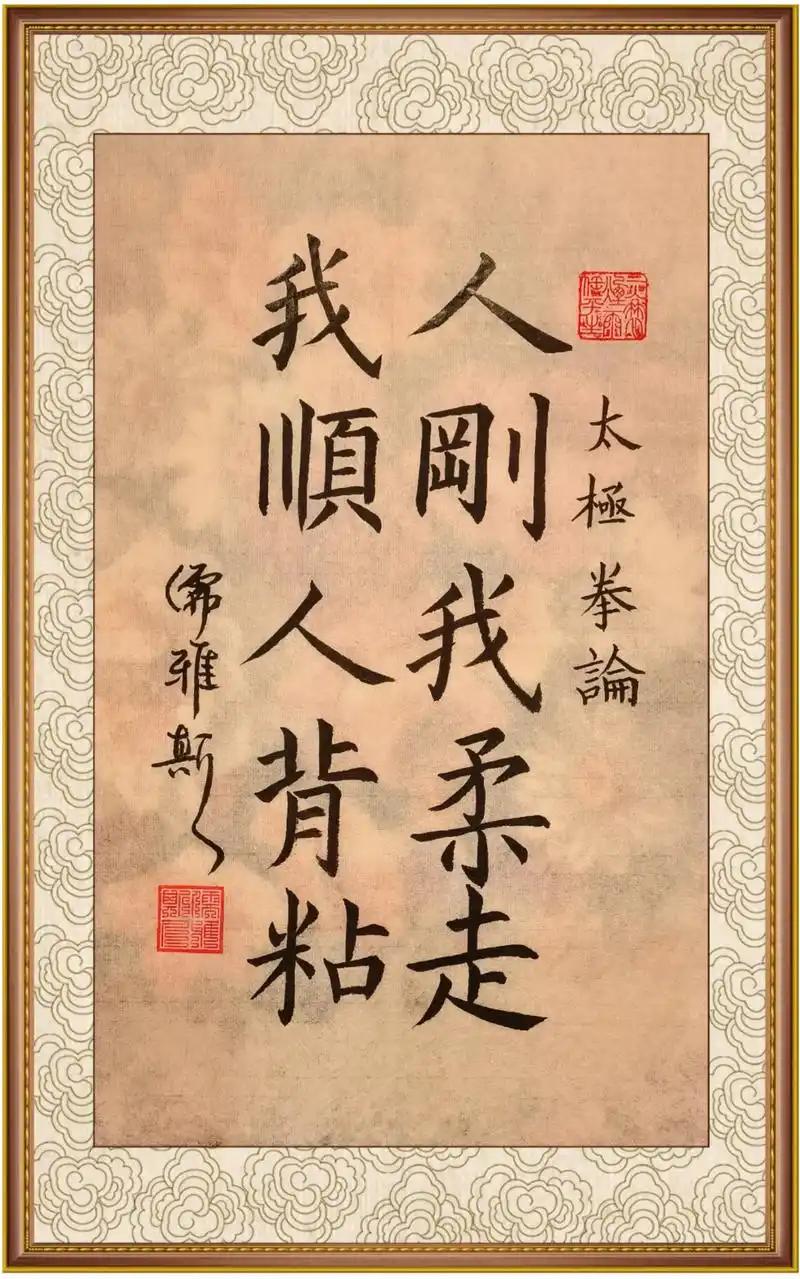 太極拳論
人剛我柔走
我順人背粘
儒雅斯